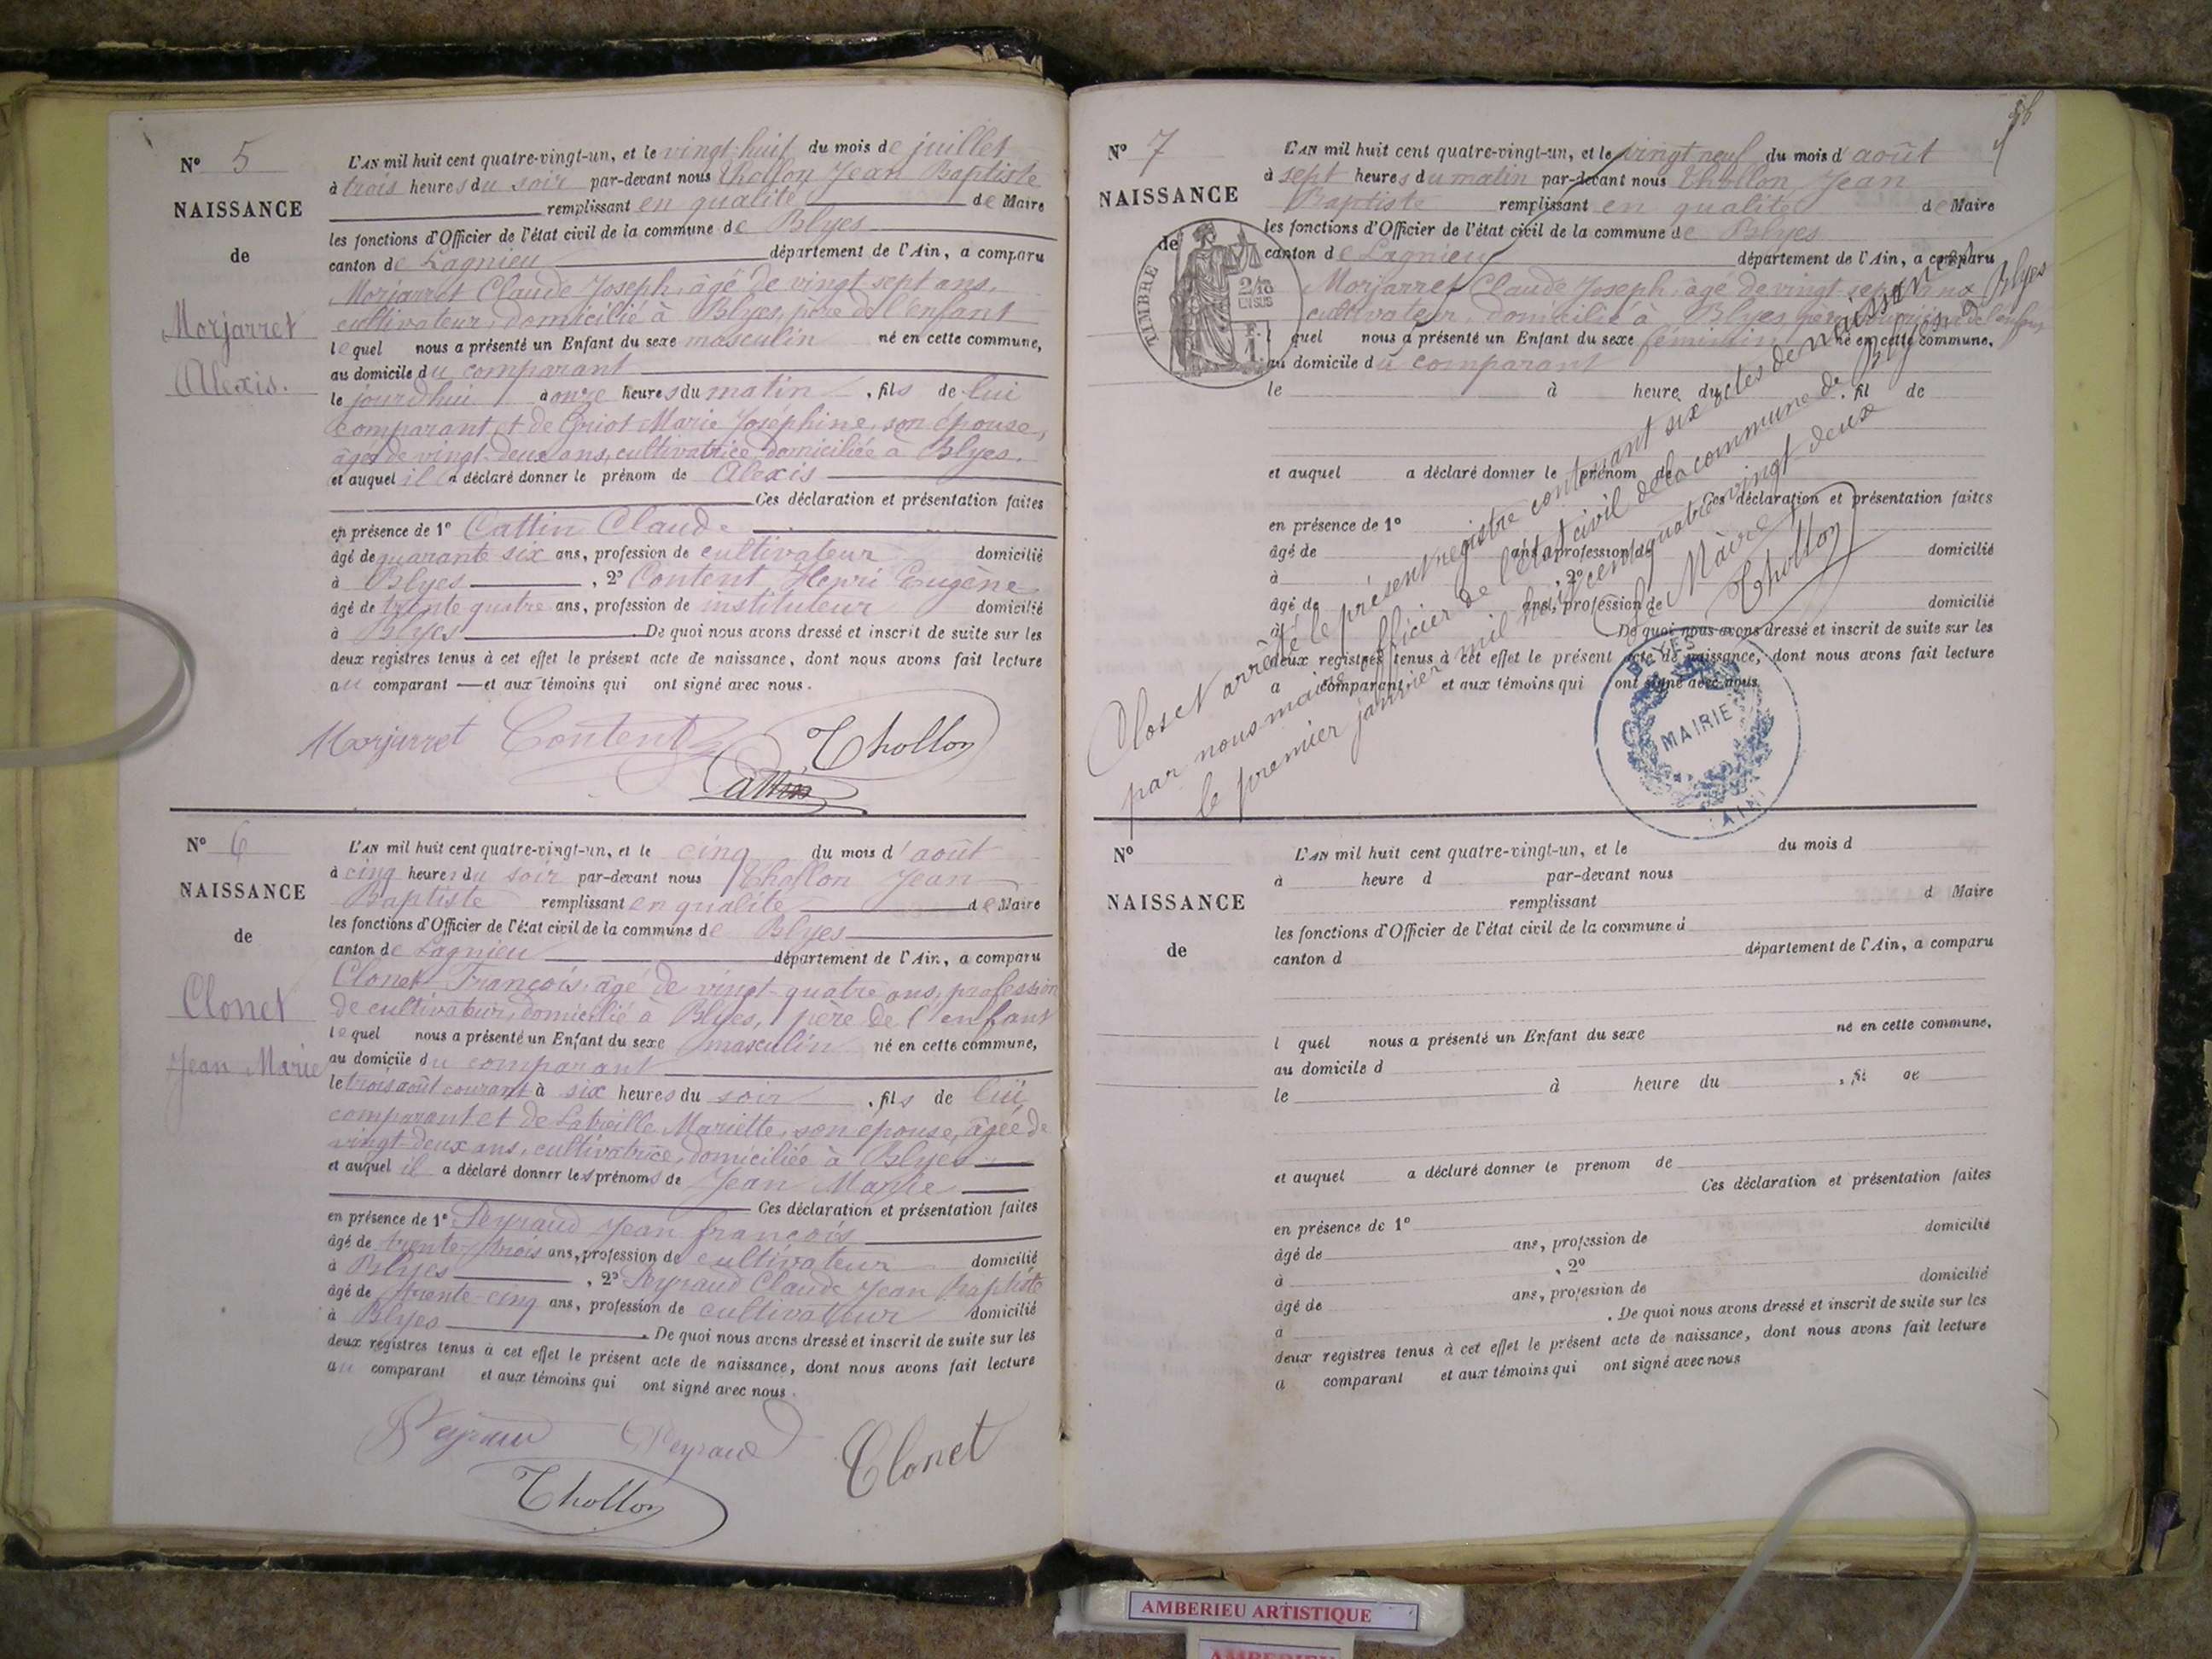 N° 5
NAISSANCE
de
Morjarret
Alexis.
L'AN mil huit cent quatre-vingt-un, et le vingt-huit du mois de juillet
à trois heures du soir par-devant nous Thollon Jean Baptiste
remplissant en qualité de Maire
les fonctions d'Officier de l'état civil de la commune de Blyes
canton de Lagnieu département de l'Ain, a comparu
Morjarret Claude Joseph, âgé de vingt sept ans,
cultivateur, domicilié à Blyes, père de l'enfant
lequel nous a présenté un Enfant du sexe masculin né en cette commune,
au domicile du comparant
le jourd'hui à onze heures du matin, fils de lui
comparant et de Griot Marie Joséphine, son épouse,
âgée de vingt-deux ans, cultivatrice, domiciliée à Blyes.
et auquel il a déclaré donner le prénom de Alexis
Ces déclaration et présentation faites
en présence de 1° Cattin Claude
âgé de quarante six ans, profession de cultivateur domicilié
à Blyes, 2° Content Henri Eugène
âgé de trente quatre ans, profession de instituteur domicilié
à Blyes. De quoi nous avons dressé et inscrit de suite sur les
deux registres tenus à cet effet le présent acte de naissance, dont nous avons fait lecture
au comparant et aux témoins qui ont signé avec nous.
Morjarret Content Thollon
Cattin
N° 6
NAISSANCE
de
Clonet
Jean Marie
L'AN mil huit cent quatre-vingt-un, et le cinq du mois d'août
à cinq heures du soir par-devant nous Thollon Jean
Baptiste remplissant en qualité de Maire
les fonctions d'Officier de l'état civil de la commune de Blyes
canton de Lagnieu département de l'Ain, a comparu
Clonet François, âgé de vingt-quatre ans, profession
de cultivateur, domicilié à Blyes, père de l'enfant
lequel nous a présenté un Enfant du sexe masculin né en cette commune,
au domicile du comparant
le trois août courant à six heures du soir, fils de lui
comparant et de Latreille Mariette, son épouse, âgée de
vingt-deux ans, cultivatrice, domiciliée à Blyes
et auquel il a déclaré donner les prénoms de Jean Marie
Ces déclaration et présentation faites
en présence de 1° Peyraud Jean françois
âgé de trente-trois ans, profession de cultivateur domicilié
à Blyes, 2° Peyraud Claude Jean Baptiste
âgé de trente-cinq ans, profession de cultivateur domicilié
à Blyes. De quoi nous avons dressé et inscrit de suite sur les
deux registres tenus à cet effet le présent acte de naissance, dont nous avons fait lecture
au comparant et aux témoins qui ont signé avec nous.
Peyraud Peyraud Clonet
Thollon
N° 7
NAISSANCE
de
TIMBRE
L'AN mil huit cent quatre-vingt-un, et le vingt neuf du mois d'août
à sept heures du matin par-devant nous Thollon Jean
Baptiste remplissant en qualité de Maire
les fonctions d'Officier de l'état civil de la commune de Blyes
canton de Lagnieu département de l'Ain, a comparu
Morjarret Claude Joseph, âgé de vingt sept ans
cultivateur, domicilié à Blyes,
l quel nous a présenté un Enfant du sexe féminin né en cette commune,
au domicile du comparant
le à heure du , fil de
et auquel a déclaré donner le prénom de
Ces déclaration et présentation faites
en présence de 1°
âgé de ans, profession de domicilié
à , 2°
âgé de ans, profession de domicilié
à . De quoi nous avons dressé et inscrit de suite sur les
deux registres tenus à cet effet le présent acte de naissance, dont nous avons fait lecture
a comparant et aux témoins qui ont signé avec nous
Clos et arrêté le présent registre contenant six actes de naissance
par nous maire officier de l'état civil de la commune de Blyes à Blyes
le premier janvier mil huit cent quatre vingt deux
Le Maire
Thollon
BLYES
MAIRIE
(AIN)
N°
NAISSANCE
de
L'AN mil huit cent quatre-vingt-un, et le du mois d
à heure d par-devant nous
remplissant d Maire
les fonctions d'Officier de l'état civil de la commune d
canton d département de l'Ain, a comparu
l quel nous a présenté un Enfant du sexe né en cette commune,
au domicile d
le à heure du , fil de
et auquel a déclaré donner le prenom de
Ces déclaration et présentation faites
en présence de 1°
âgé de ans, profession de domicilié
à , 2°
âgé de ans, profession de domicilié
à . De quoi nous avons dressé et inscrit de suite sur les
deux registres tenus à cet effet le présent acte de naissance, dont nous avons fait lecture
a comparant et aux témoins qui ont signé avec nous
AMBERIEU ARTISTIQUE
AMBERIEU